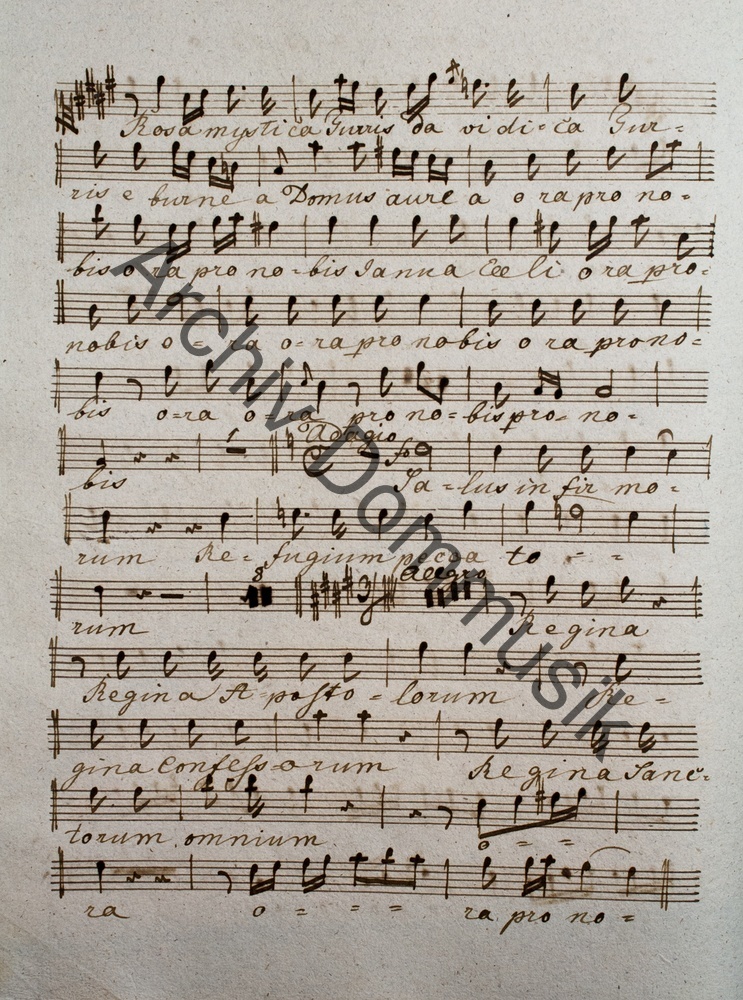 Rosa mystica Turris da vi di=ca Tur=
ris e burne a Domus aure a o ra pro no=
bis o ra pro no=bis Janua Cœli o ra pro=
nobis o=ra o=ra pro nobis o ra pro no=
bis o=ra o=ra pro no=bis pro=no=
Adagio
bis Sa=lus in fir mo=
rum Re=fugium pecca to = =
8 Allegro
rum Regina
Regina A=posto=lorum Re=
gina Confess=o rum Regina Sanc=
torum omnium o = = =
ra o = = = ra pro no=
Archiv Dommusik